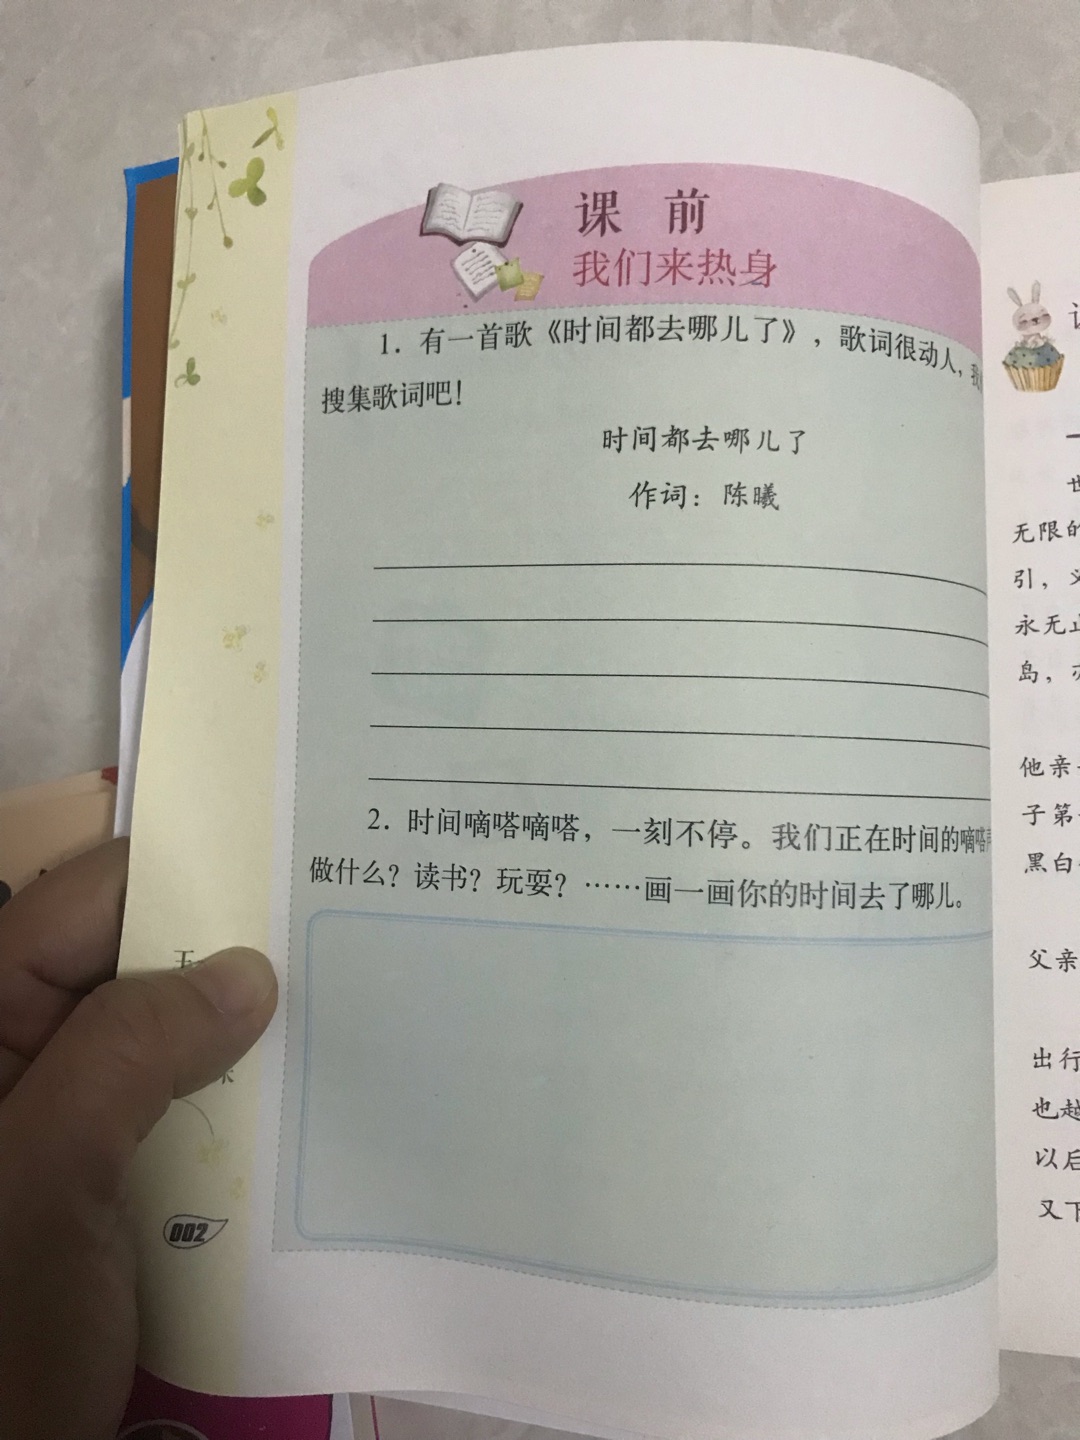 课 前
我们来热身
1. 有一首歌《时间都去哪儿了》，歌词很动人，我
搜集歌词吧！
时间都去哪儿了
作词：陈曦
2. 时间嘀嗒嘀嗒，一刻不停。我们正在时间的嘀嗒声
做什么？读书？玩耍？……画一画你的时间去了哪儿。
002
一
无限的
引，
永无止
岛，
他亲
子第
黑白
父亲
出行
也越
以后
又下